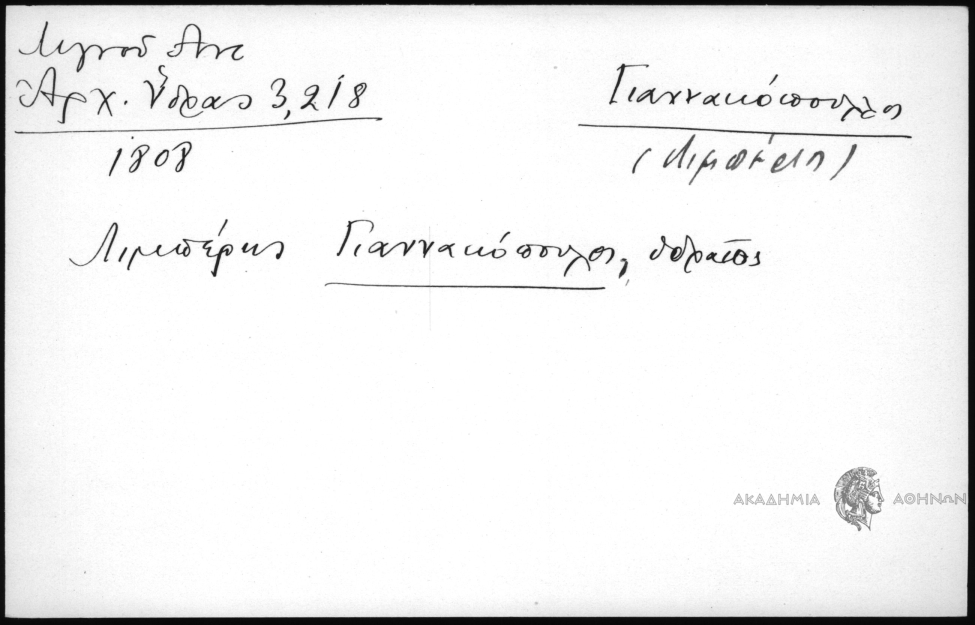 Λιγνού Αντ
Ἀρχ. Ὕδρας 3, 218
1808
Γιαννακόπουλος
(Λιμπέρης)
Λιμπέρης Γιαννακόπουλος, ὑδραῖος
ΑΚΑΔΗΜΙΑ ΑΘΗΝΩΝ